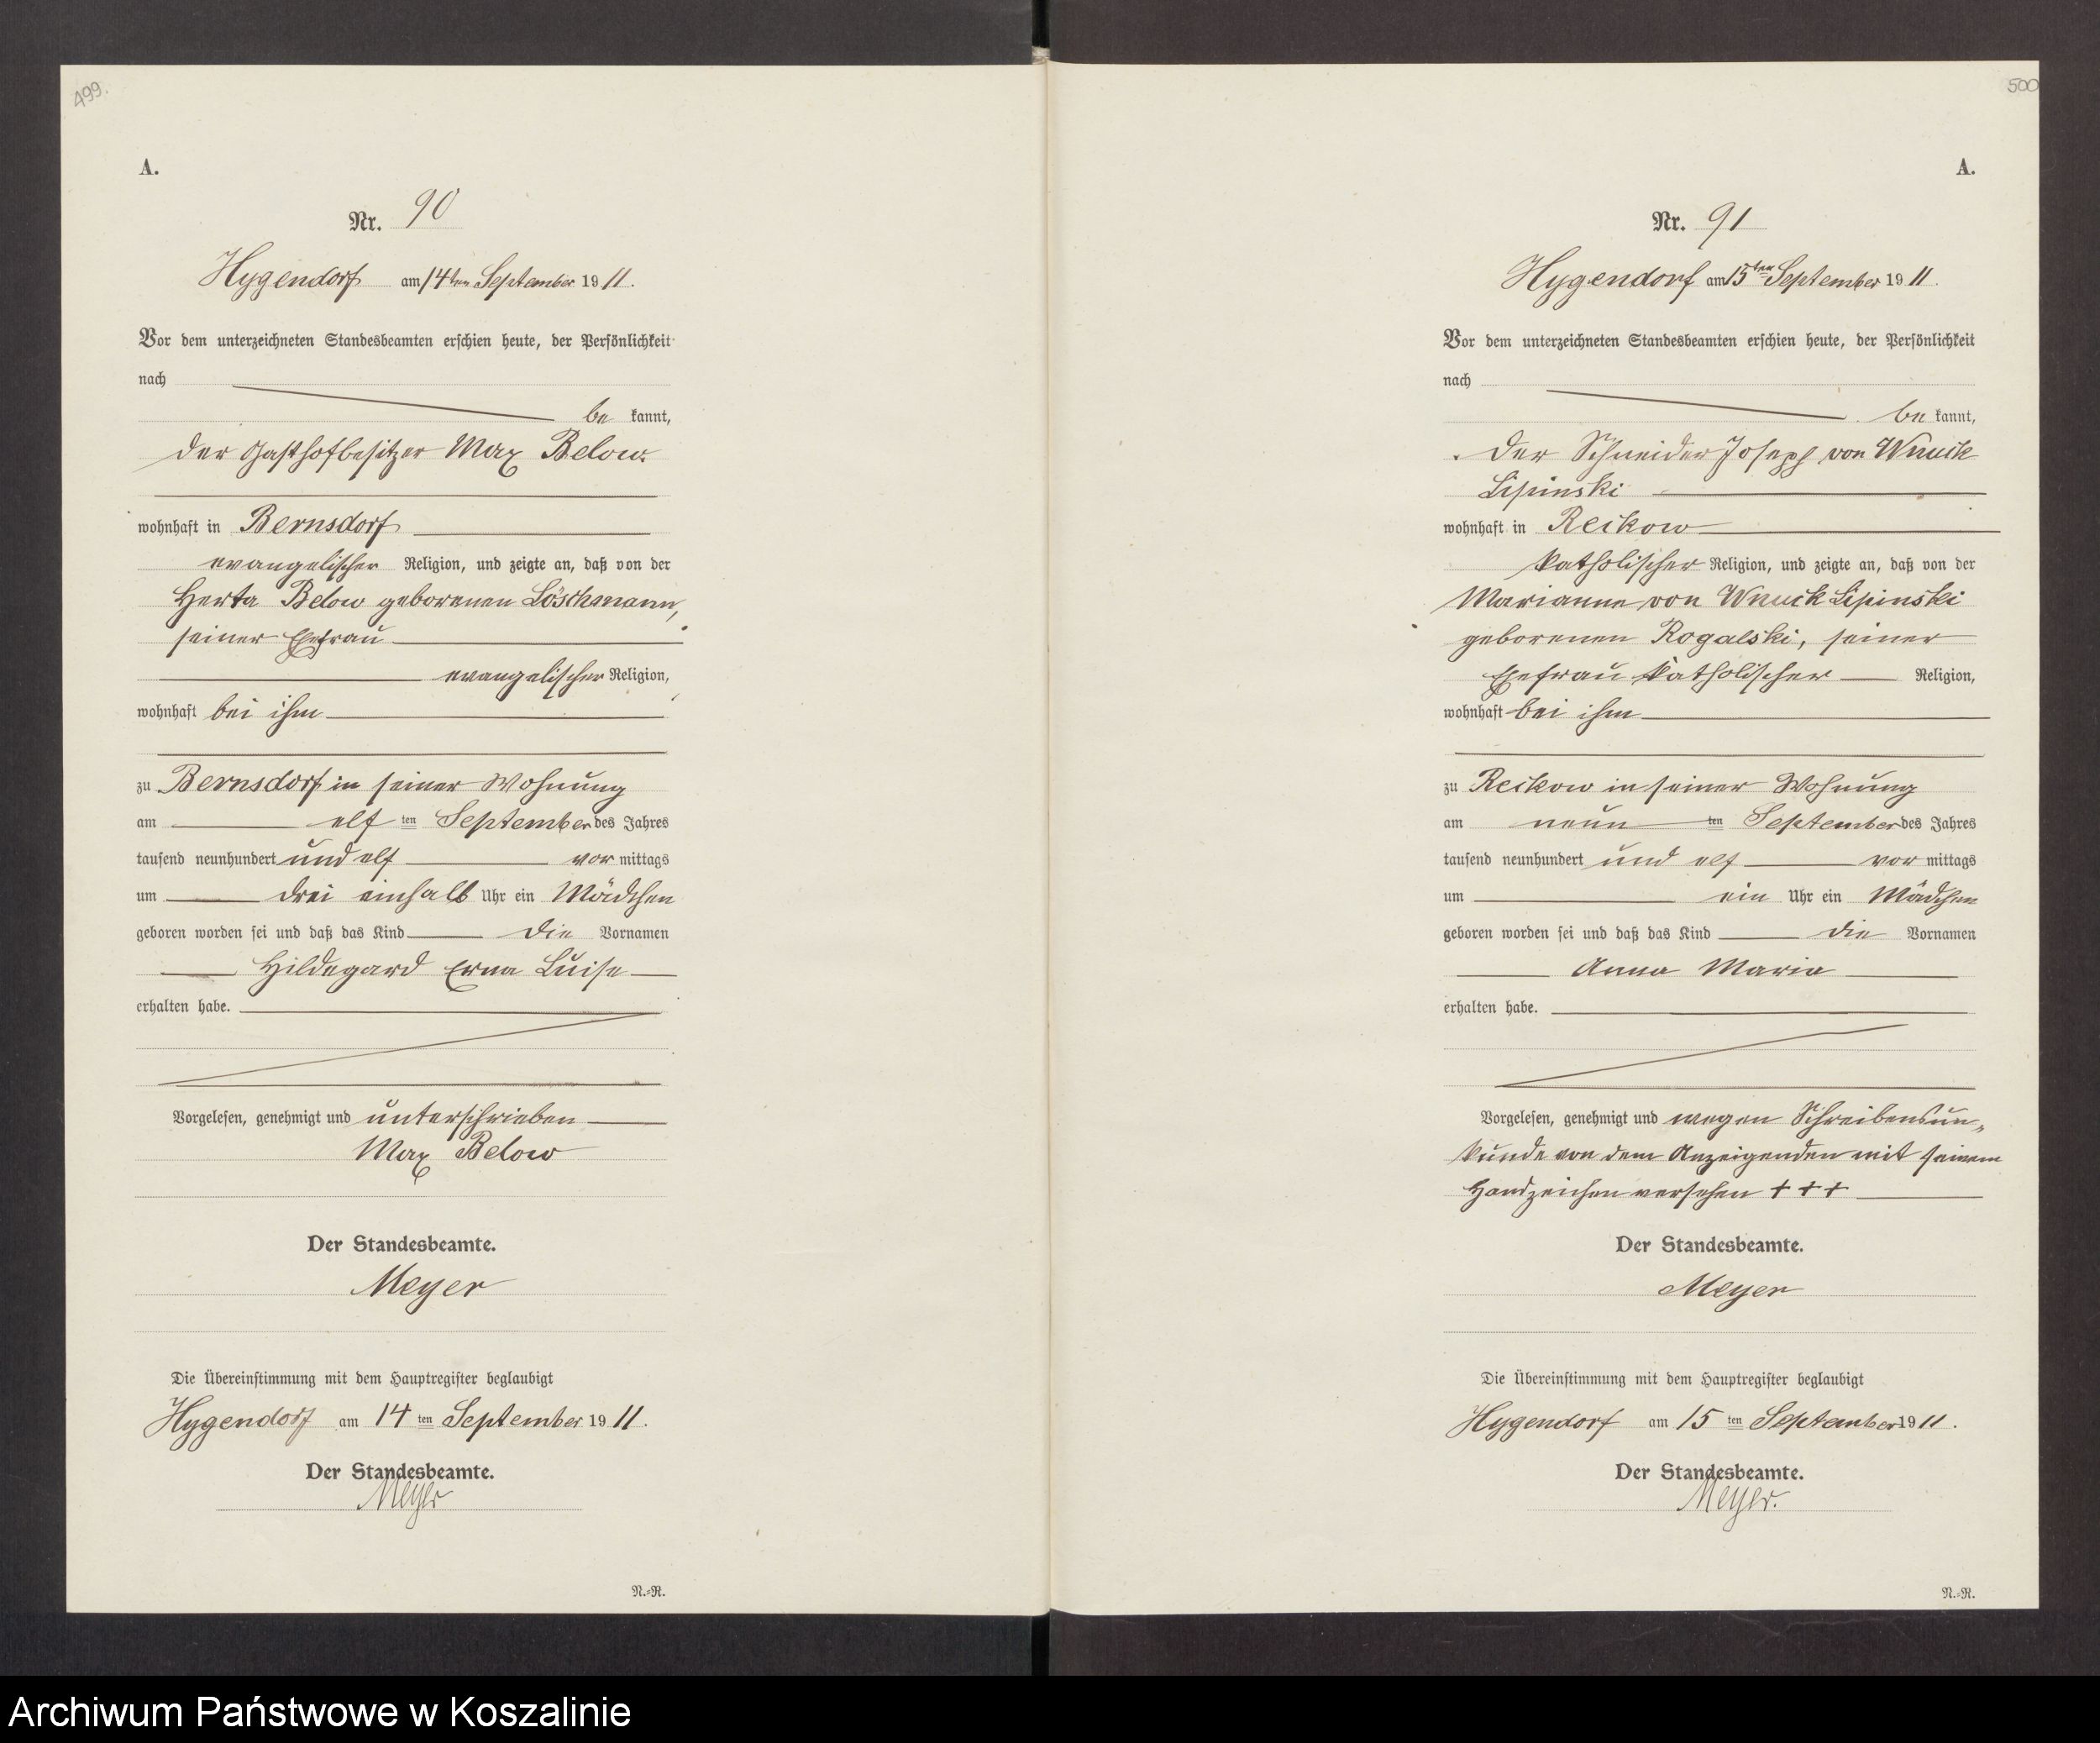 499.
A.
Nr. 90
Hygendorf am 14ten September 1911.
Vor dem unterzeichneten Standesbeamten erschien heute, der Persönlichkeit
nach
be kannt,
der Gasthofbesitzer Max Below.
wohnhaft in Bernsdorf
evangelischer Religion, und zeigte an, daß von der
Herta Below geborenen Löschmann,
seiner Ehefrau
evangelischer Religion,
wohnhaft bei ihm
zu Bernsdorf in seiner Wohnung
am elf ten September des Jahres
tausend neunhundert und elf vor mittags
um drei einhalb Uhr ein Mädchen
geboren worden sei und daß das Kind die Vornamen
Hildegard Erna Luise
erhalten habe.
Vorgelesen, genehmigt und unterschrieben
Max Below
Der Standesbeamte.
Meyer
Die Übereinstimmung mit dem Hauptregister beglaubigt
Hygendorf am 14 ten September 1911.
Der Standesbeamte.
Meyer
N.=R.
500
A.
Nr. 91
Hygendorf am 15ten September 1911.
Vor dem unterzeichneten Standesbeamten erschien heute, der Persönlichkeit
nach
be kannt,
der Schneider Joseph von Wnuck
Lipinski
wohnhaft in Reckow
katholischer Religion, und zeigte an, daß von der
Marianne von Wnuck Lipinski
geborenen Rogalski, seiner
Ehefrau katholischer Religion,
wohnhaft bei ihm
zu Reckow in seiner Wohnung
am neun ten September des Jahres
tausend neunhundert und elf vor mittags
um ein Uhr ein Mädchen
geboren worden sei und daß das Kind die Vornamen
Anna Maria
erhalten habe.
Vorgelesen, genehmigt und wegen Schreibensun-
kunde von dem Anzeigenden mit seinem
Handzeichen versehen + + +
Der Standesbeamte.
Meyer
Die Übereinstimmung mit dem Hauptregister beglaubigt
Hygendorf am 15 ten September 1911.
Der Standesbeamte.
Meyer.
N.=R.
Archiwum Państwowe w Koszalinie